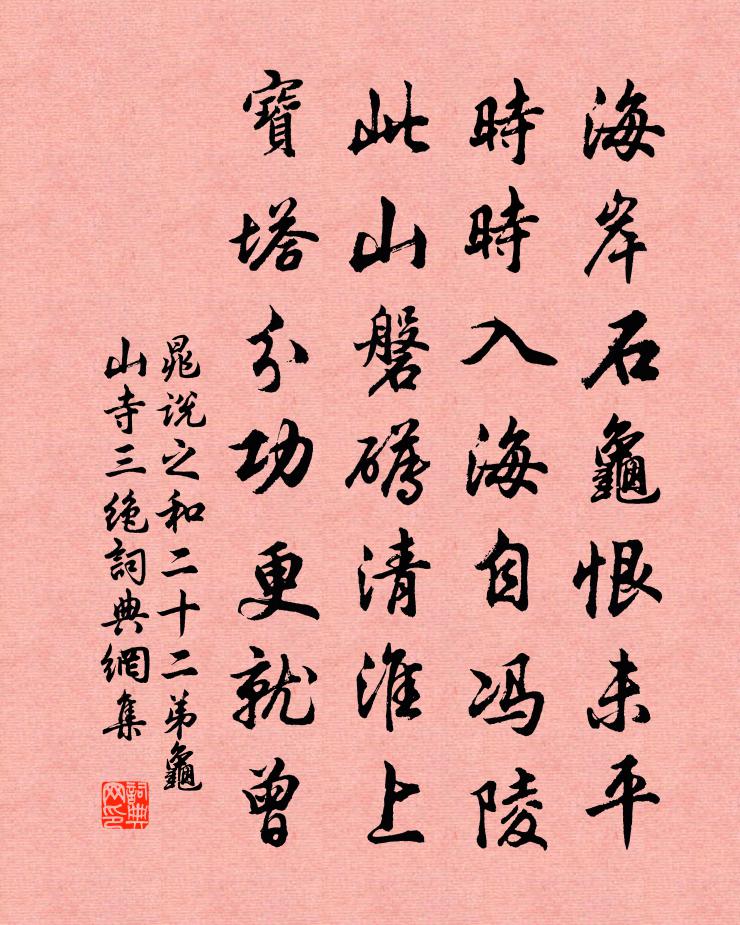 海岸石龜恨未平
時時入海自馮陵
此山磐礴清淮上
寶塔分功更就曾
晁說之和二十二弟龜
山寺三絶詞典網集
詞典
网印